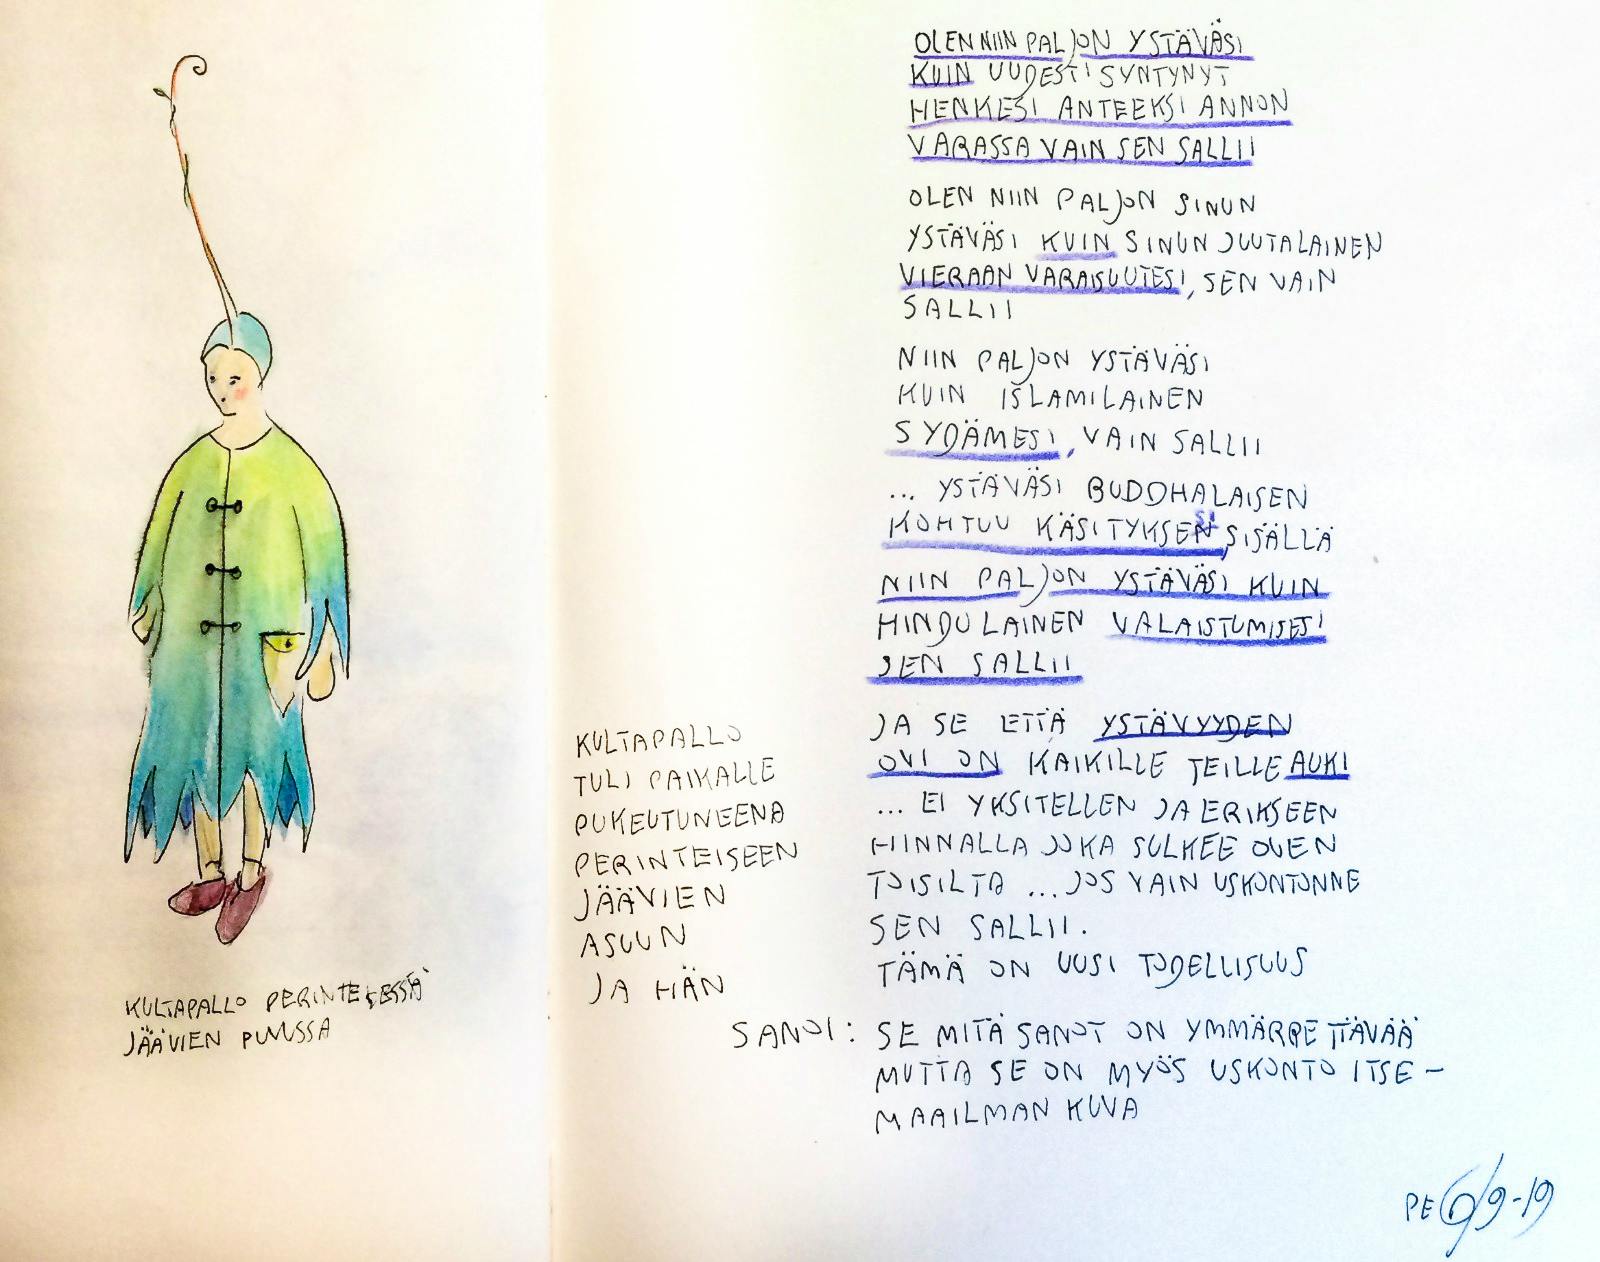 OLEN NIIN PALJON YSTÄVÄSI
KUIN UUDESTI SYNTYNYT
HENKESI ANTEEKSI ANNON
VARASSA VAIN SEN SALLII
OLEN NIIN PALJON SINUN
YSTÄVÄSI KUIN SINUN JUUTALAINEN
VIERAAN VARAISUUTESI, SEN VAIN
SALLII
NIIN PALJON YSTÄVÄSI
KUIN ISLAMILAINEN
SYDÄMESI, VAIN SALLII
... YSTÄVÄSI BUDDHALAISEN
KOHTUU KÄSITYKSESI, SISÄLLÄ
NIIN PALJON YSTÄVÄSI KUIN
HINDULAINEN VALAISTUMISESI
SEN SALLII
JA SE ETTÄ YSTÄVYYDEN
OVI ON KAIKILLE TEILLE AUKI
... EI YKSITELLEN JA ERIKSEEN
HINNALLA JOKA SULKEE OVEN
TOISILTA ... JOS VAIN USKONTONNE
SEN SALLII.
TÄMÄ ON UUSI TODELLISUUS
KULTAPALLO
TULI PAIKALLE
PUKEUTUNEENA
PERINTEISEEN
JÄÄVIEN
ASUUN
JA HÄN
SANOI: SE MITÄ SANOT ON YMMÄRRETTÄVÄÄ
MUTTA SE ON MYÖS USKONTO ITSE-
MAAILMAN KUVA
KULTAPALLO PERINTEISESSÄ
JÄÄVIEN PUVUSSA
PE 6/9-19